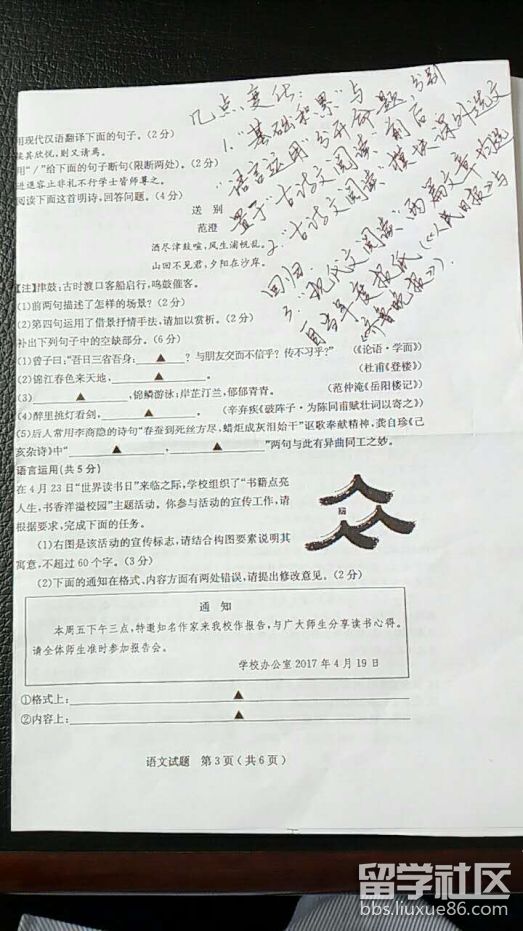 几点变化:
1."基础积累"与
"语言运用"分开命题,分别
置于"古诗文阅读"前后
2."古诗文阅读"模块课外选文
回归
3."现代文阅读"两篇文章均选
自当年度报纸(《人民日报》与
《齐鲁晚报》).
用现代汉语翻译下面的句子。(2分)
侯其欣悦,则又请焉。
用"/"给下面的句子断句(限断两处)。(2分)
进退容止非礼不行学士皆师尊之。
阅读下面这首明诗,回答问题。(4分)
送 别
范澄
酒尽津鼓喧,风生浦帆乱。
山回不见君,夕阳在沙岸。
【注】津鼓:古时渡口客船启行,鸣鼓催客。
(1)前两句描述了怎样的场景?(2分)
(2)第四句运用了借景抒情手法,请加以赏析。(2分)
补出下列句子中的空缺部分。(6分)
(1)曾子曰:"吾日三省吾身:▲?与朋友交而不信乎?传不习乎?" (《论语·学而》)
(2)锦江春色来天地,▲。 (杜甫《登楼》)
(3)▲,锦鳞游泳;岸芷汀兰,郁郁青青。 (范仲淹《岳阳楼记》)
(4)醉里挑灯看剑,▲。 (辛弃疾《破阵子·为陈同甫赋壮词以寄之》)
(5)后人常用李商隐的诗句"春蚕到死丝方尽,蜡炬成灰泪始干"讴歌奉献精神,龚自珍《己
亥杂诗》中"▲,▲"两句与此有异曲同工之妙。
语言运用(共5分)
在4月23日"世界读书日"来临之际,学校组织了"书籍点亮
人生,书香洋溢校园"主题活动。你参与活动的宣传工作,请
根据要求,完成下面的任务。
(1)右图是该活动的宣传标志,请结合构图要素说明其
寓意,不超过60个字。(3分)
(2)下面的通知在格式、内容方面有两处错误,请提出修改意见。(2分)
通 知
本周五下午三点,特邀知名作家来我校作报告,与广大师生分享读书心得。
请全体师生准时参加报告会。
学校办公室2017年4月19日
①格式上:▲
②内容上:▲
语文试题 第3页(共6页)
留学社区
bbs.liuxue86.com